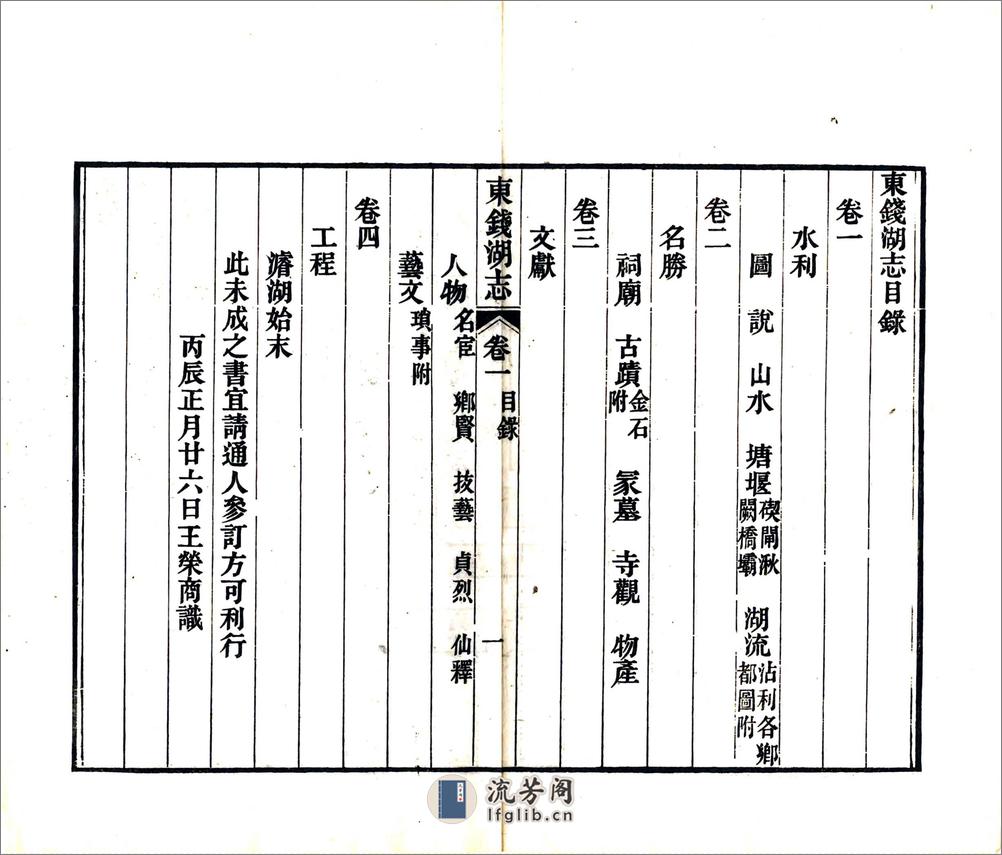 東錢湖志目錄
卷一
水利
圖說 山水 塘堰碶閘湫闕橋壩 湖流沾利各鄉都圖附
卷二
名勝
祠廟 古蹟金石附 冢墓 寺觀 物產
卷三
文獻
東錢湖志 卷一 目錄 一
人物名宦 鄉賢 技藝 貞烈 仙釋
藝文瑣事附
卷四
工程
濬湖始末
此未成之書宜請通人參訂方可利行
丙辰正月廿六日王榮商識
流芳阁
lfglib.cn